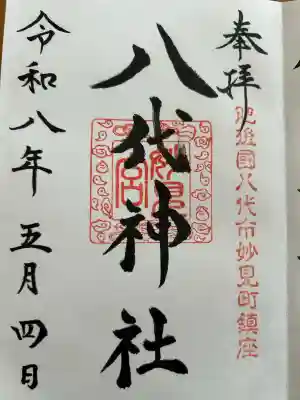 奉拝
肥後國八代市妙見町鎮座
八代神社
妙見宮
令和八年 五月 四日